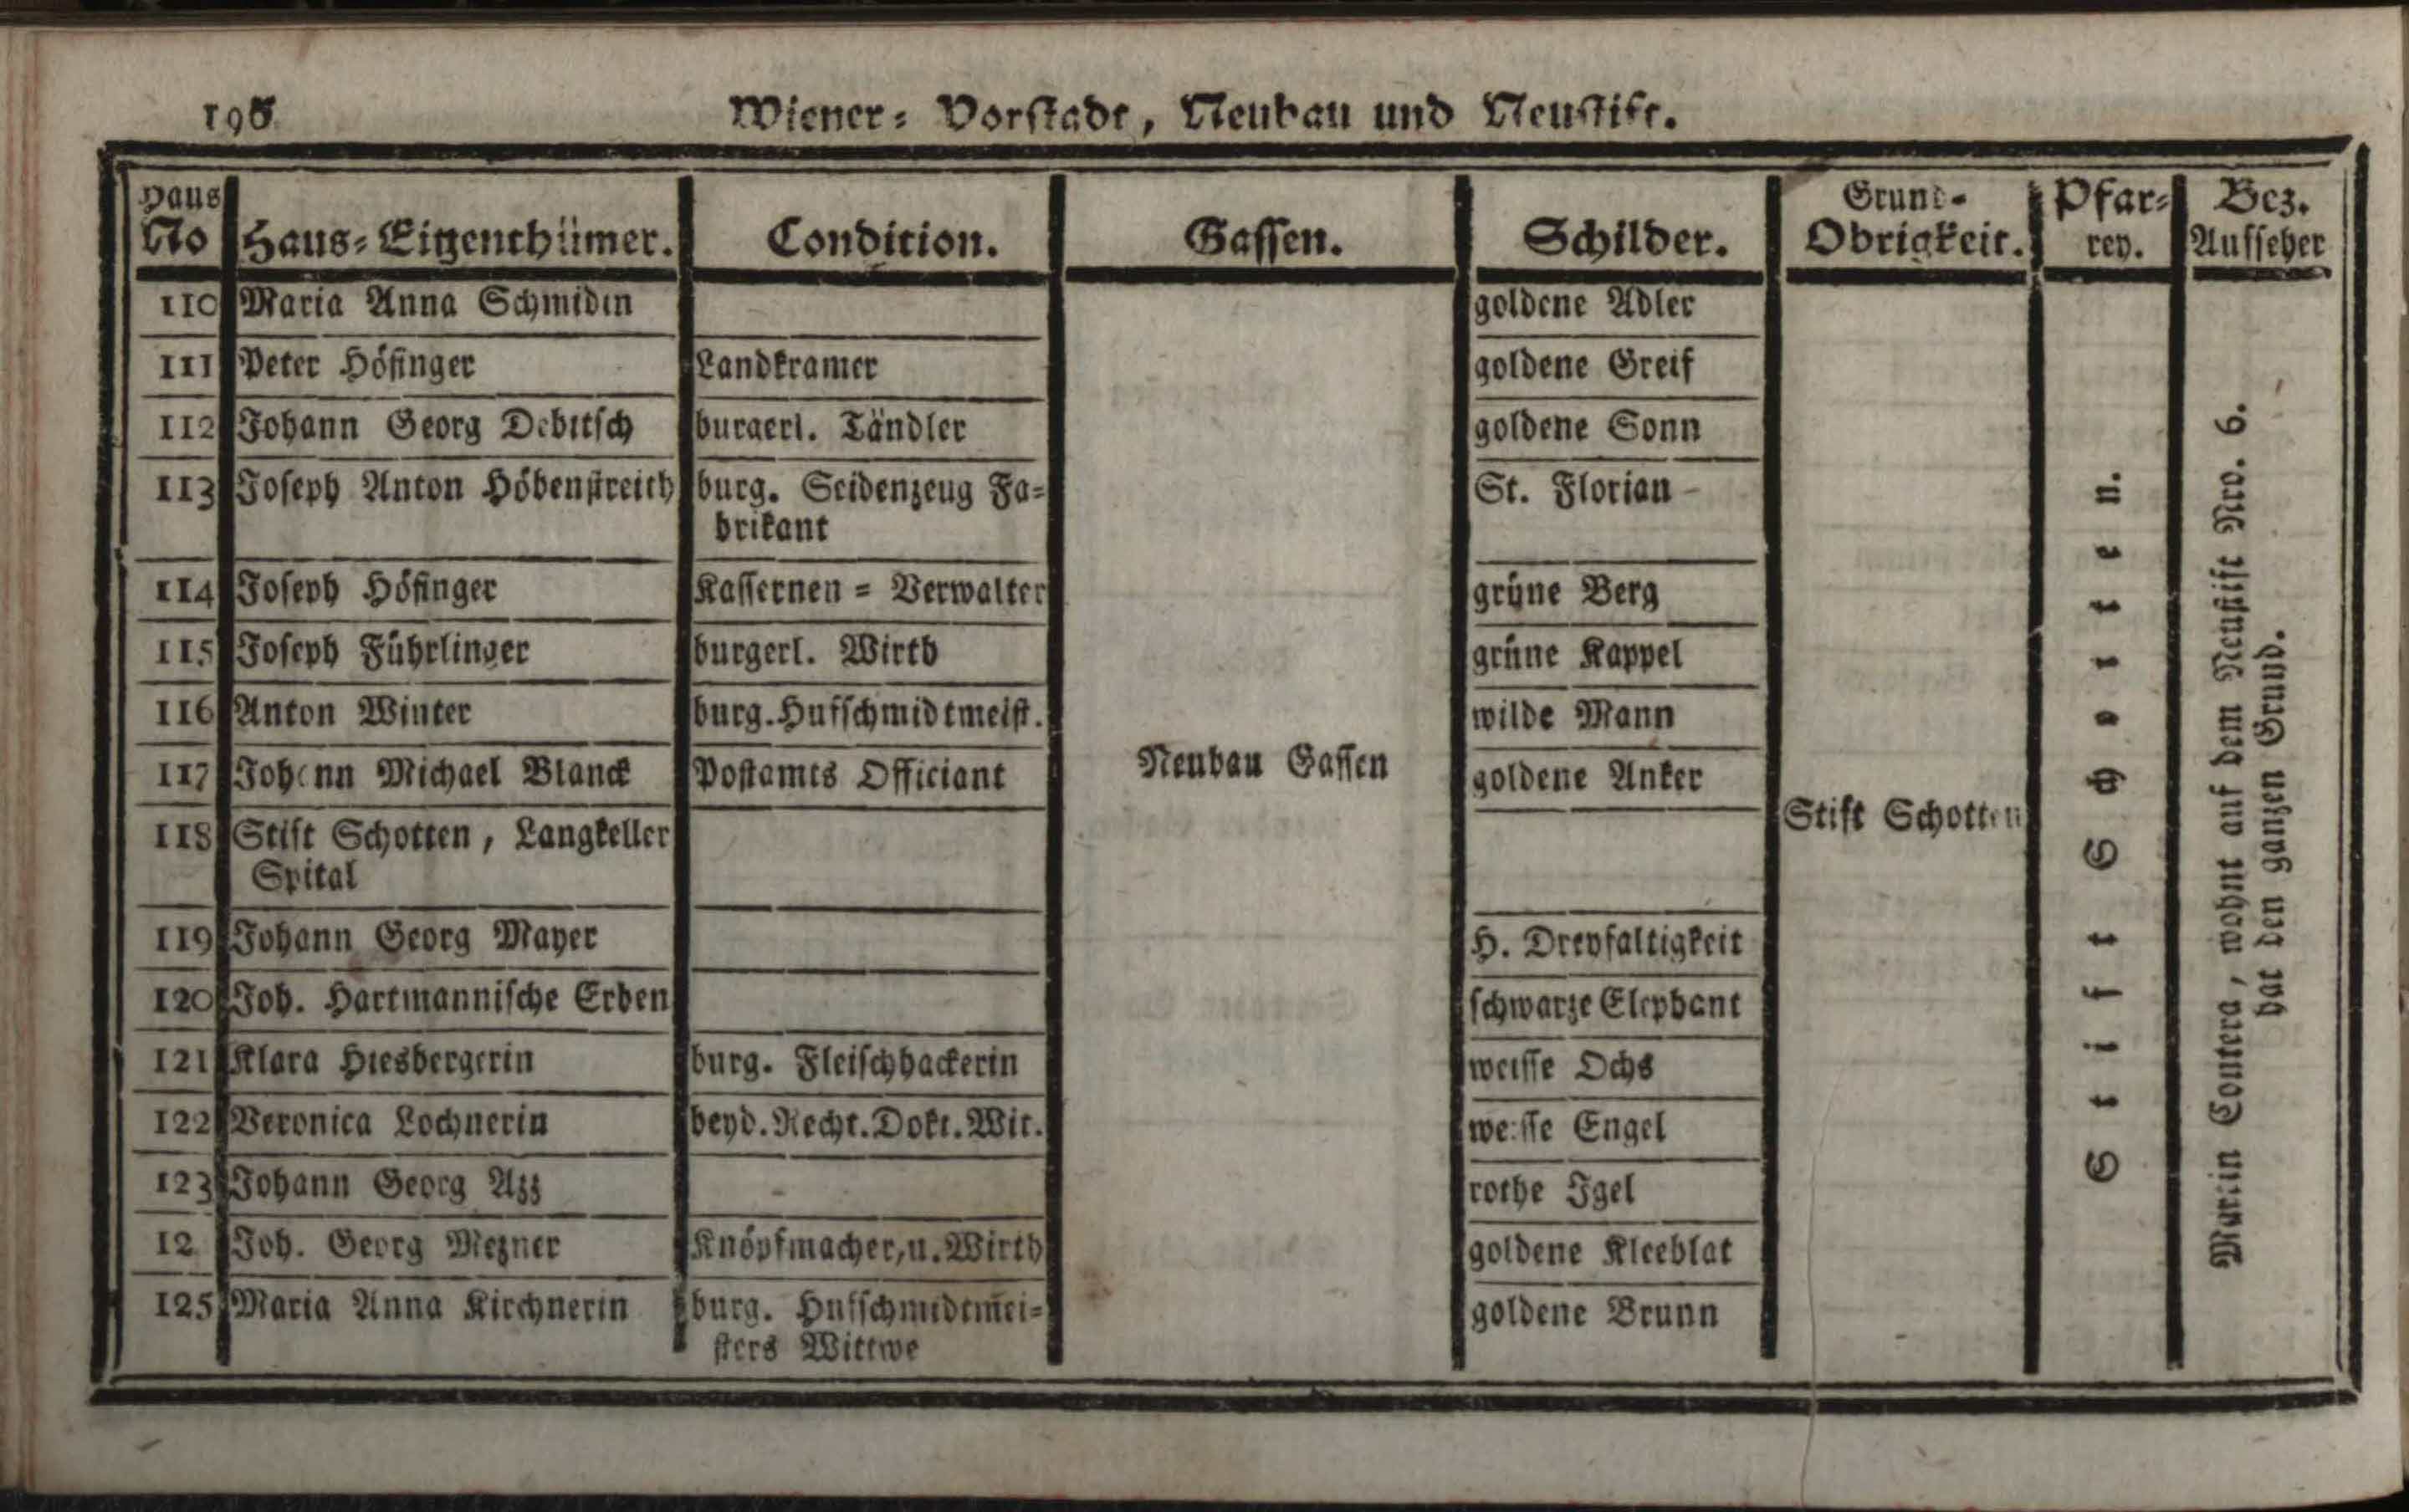 198
Wiener- Vorstadt, Neubau und Neustift.
Haus No Haus-Eigenthümer. Condition. Gassen. Schilder. Grund-Obrigkeit. Pfar-rey. Bez. Aufseher
110 Maria Anna Schmidin goldene Adler
111 Peter Höfinger Landkramer goldene Greif
112 Johann Georg Debitsch burgerl. Tändler goldene Sonn
113 Joseph Anton Höbenstreith burg. Seidenzeug Fa- St. Florian
brikant
114 Joseph Höfinger Kassernen-Verwalter grüne Berg
115 Joseph Führlinger burgerl. Wirth grüne Kappel
116 Anton Winter burg. Hufschmidtmeist. wilde Mann
117 Johann Michael Blanck Postamts Officiant goldene Anker
Neubau Gassen
Stift Schotten
118 Stift Schotten, Langkeller
Spital
119 Johann Georg Mayer H. Dreyfaltigkeit
120 Joh. Hartmannische Erben schwarze Elephant
121 Klara Hiesbergerin burg. Fleischhackerin weisse Ochs
122 Veronica Lochnerin beyd. Recht. Dokt. Wit. weisse Engel
123 Johann Georg Azz rothe Igel
12 Joh. Georg Mezner Knöpfmacher, u. Wirth goldene Kleeblat
125 Maria Anna Kirchnerin burg. Hufschmidtmei- goldene Brunn
sters Wittwe
Stift Schotten.
Martin Contera, wohnt auf dem Neustift Nro. 6.
hat den ganzen Grund.